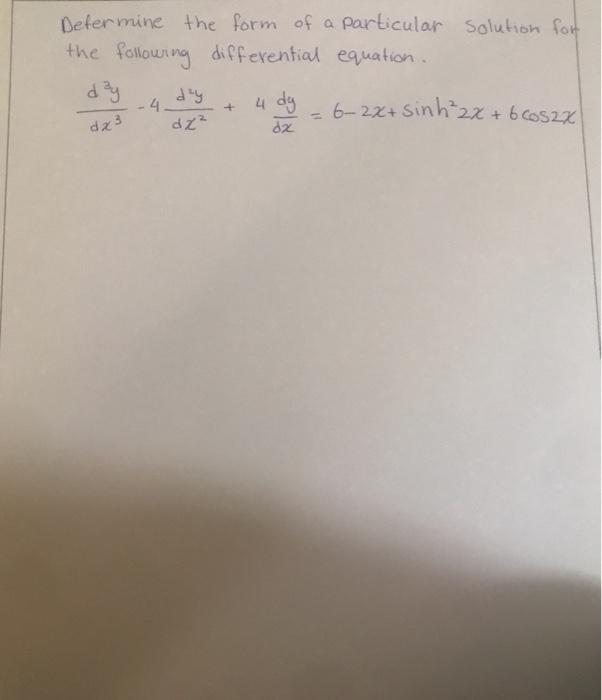 Determine the form of a particular solution for
the following differential equation.
d³y/dx³ - 4 d²y/dx² + 4 dy/dx = 6-2x+sinh²2x+6cos2x